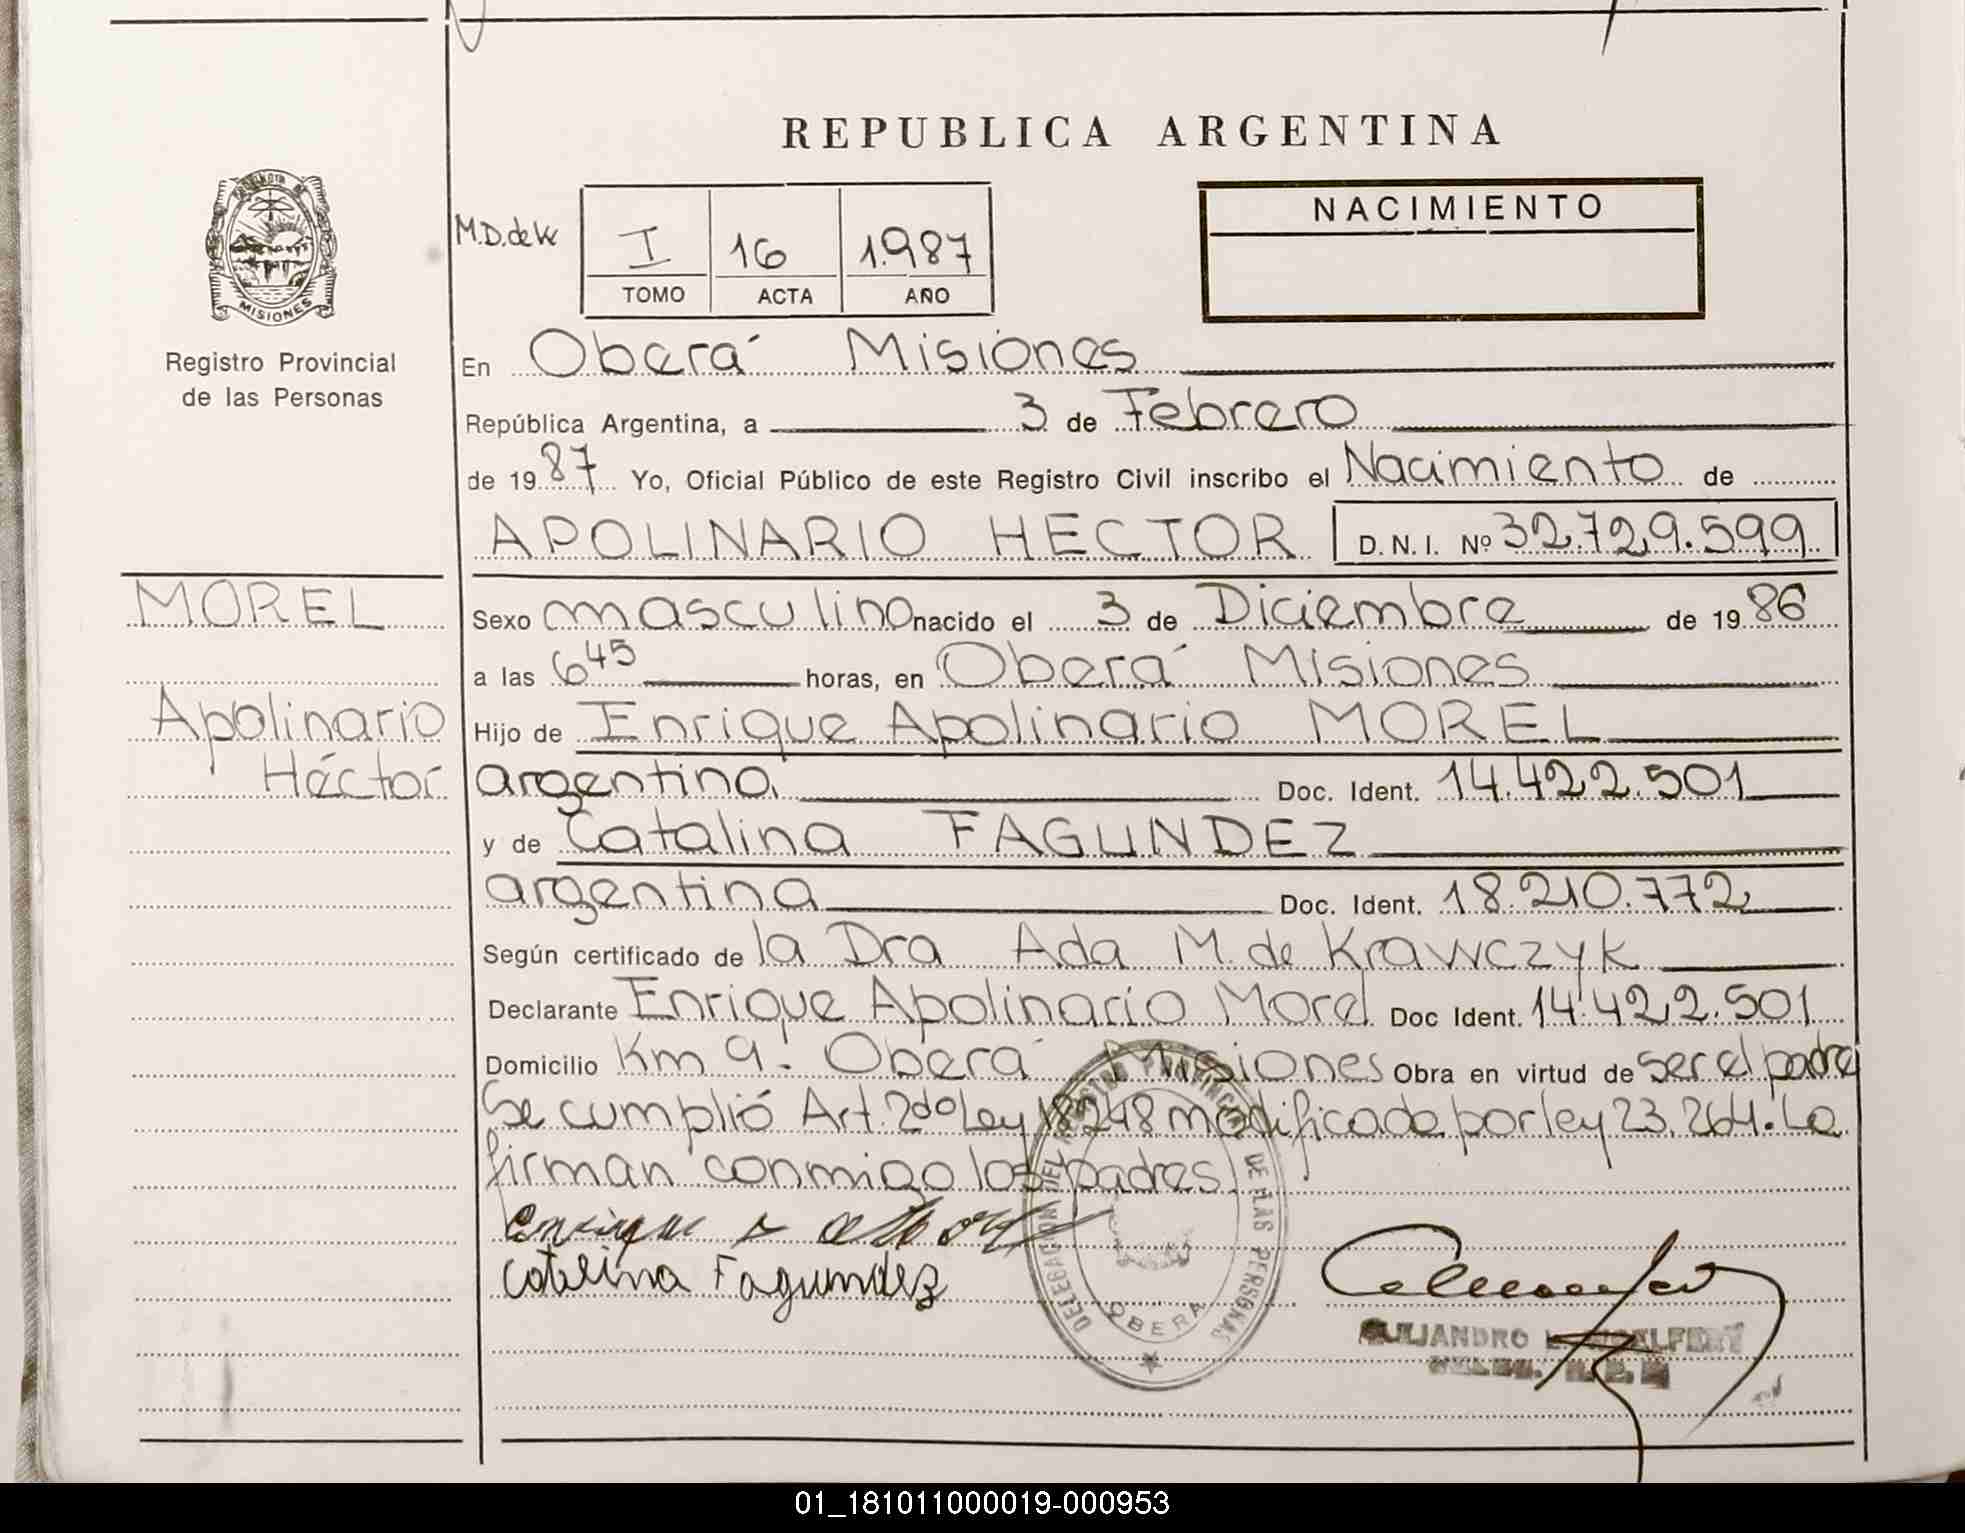 REPUBLICA ARGENTINA
PROVINCIA DE
MISIONES
Registro Provincial
de las Personas
M.D.de K
I 16 1.987
TOMO ACTA AÑO
NACIMIENTO
En Oberá Misiones
República Argentina, a 3 de Febrero
de 1987 Yo, Oficial Público de este Registro Civil inscribo el Nacimiento de
APOLINARIO HECTOR D.N.I. Nº 32.729.599
MOREL
Apolinario
Héctor
Sexo masculino nacido el 3 de Diciembre de 1986
a las 6 45 horas, en Oberá Misiones
Hijo de Enrique Apolinario MOREL
argentino. Doc. Ident. 14.422.501
y de Catalina FAGUNDEZ
argentina Doc. Ident. 18.210.772
Según certificado de la Dra Ada M. de Krawczyk
Declarante Enrique Apolinario Morel Doc Ident. 14.422.501
Domicilio Km 9. Oberá Misiones Obra en virtud de ser el padre
Se cumplió Art. 2do Ley 18248 modificada por ley 23.264. La
firman conmigo los padres.
Catalina Fagundez
DELEGACION DEL REGISTRO PROVINCIAL DE LAS PERSONAS
OBERA
01_181011000019-000953